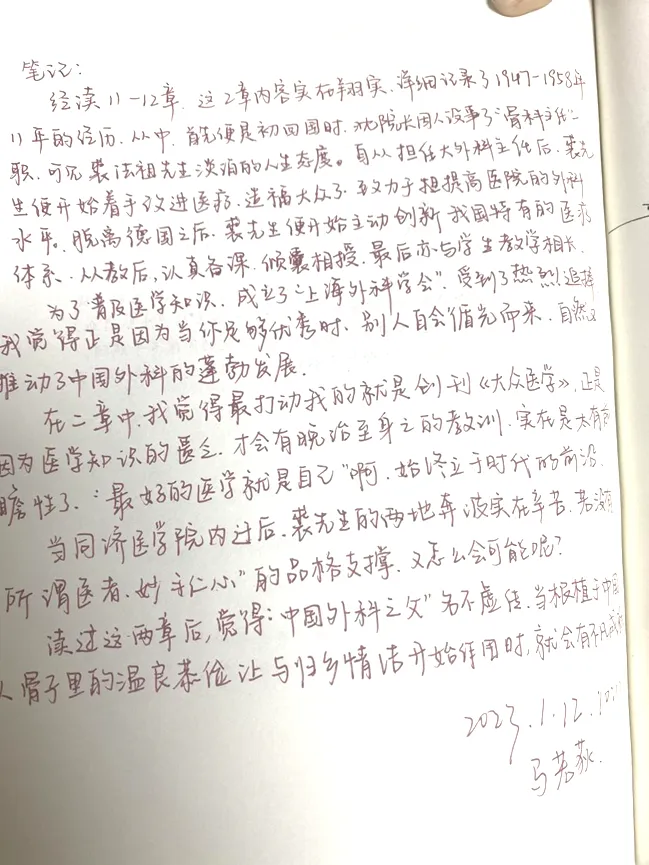 笔记:
经读11-12章,这2章内容实在翔实、详细记录了1947-1958年
11年的经历,从中,首先便是初回国时,沈院长因人设事了“骨科主任”一
职,可见裘法祖先生淡泊的人生态度。自从担任大外科主任后,裘先
生便开始着手改进医疗,造福大众了,致力于提高医院的外科
水平。脱离德国之后,裘先生便开始主动创新我国特有的医疗
体系、从教后,认真备课,倾囊相授,最后亦与学生教学相长。
为了普及医学知识,成立了“上海外科学会”,受到了热烈追捧
我觉得正是因为当你足够优秀时,别人自会循光而来,自然又
推动了中国外科的蓬勃发展。
在二章中,我觉得最打动我的就是创刊《大众医学》,正是
因为医学知识的匮乏,才会有晚治至身亡的教训,实在是太有前
瞻性了,“最好的医学就是自己”啊,始终立于时代的前沿。
当同济医学院内迁后,裘先生的两地奔波实在辛苦,若没有
所谓医者,妙手仁心”的品格支撑,又怎么会可能呢?
读过这两章后,觉得:“中国外科之父”名不虚传,当根植于中国
人骨子里的温良恭俭让与归乡情结开始作用时,就会有不凡
2023.1.12.
马若荻.